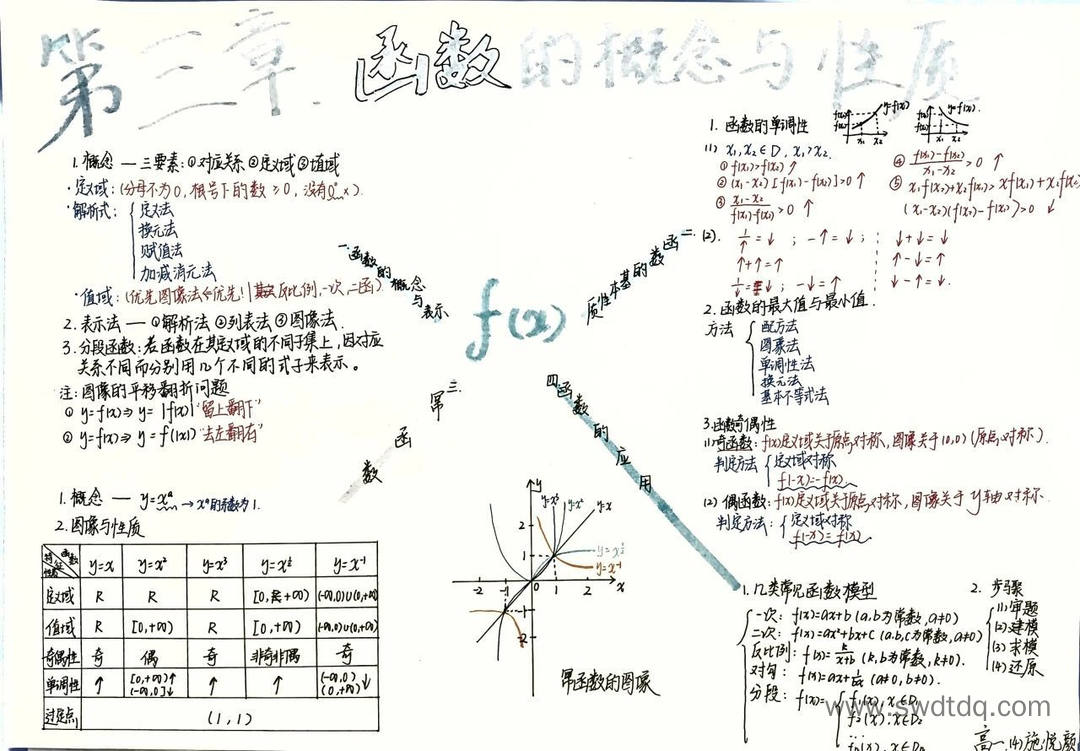 第三章 函数的概念与性质
1. 概念 — 三要素:①对应关系 ②定义域 ③值域
·定义域:(分母不为0,根号下的数≥0,没有0⁰×).
·解析式:
定义法
换元法
赋值法
加减消元法
·值域:
2. 表示法 — ①解析法 ②列表法 ③图像法.
3. 分段函数:若函数在其定义域的不同子集上,因对应
关系不同而分别用几个不同的式子来表示。
注:图像的平移翻折问题
① y=f(x)⇒ y=|f(x)|“留上翻下”
② y=f(x)⇒ y=f(|x|)“去左翻右”
一 函数的概念与表示
f(x)
二 函数的基本性质
三. 幂函数
四 函数的应用
1. 函数的单调性
y=f(x)
f(x₁)
f(x₂)
x₁ x₂
y=f(x).
f(x₁)
f(x₂)
x₁ x₂
(1) x₁,x₂∈D, x₁>x₂.
① f(x₁)>f(x₂) ↑
② (x₁-x₂)[f(x₁)-f(x₂)]>0 ↑
③ x₁-x₂/f(x₁)-f(x₂) >0 ↑
④ f(x₁)-f(x₂)/x₁-x₂ >0 ↑
⑤ x₁f(x₂)+x₂f(x₁)> xf(x₁)+x₂f(x
(x₁-x₂)(f(x₁)-f(x₂)>0 ↓
(2). 1/↑=↓ ; -↑=↓ ; ↓+↓=↓
↑+↑=↑ ↑-↓=↑
1/↓= ↓ ; -↓=↑ ↓-↑=↓.
2. 函数的最大值与最小值.
方法
配方法
图像法
单调性法
换元法
基本不等式法
3. 函数奇偶性
(1) 奇函数:f(x)定义域关于原点对称,图像关于(0,0)(原点对称).
判定方法
定义域对称
f(-x)=-f(x)
(2) 偶函数:f(x)定义域关于原点对称,图像关于y轴对称.
判定方法:
定义域对称
f(-x)=f(x)
1. 概念 — y=xᵃ → xᵃ的系数为1.
2. 图像与性质
特征性质 函数 y=x y=x² y=x³ y=x^½ y=x⁻¹
定义域 R R R [0,+∞) (-∞,0)∪(0,+∞)
值域 R [0,+∞) R [0,+∞) (-∞,0)∪(0,+∞)
奇偶性 奇 偶 奇 非奇非偶 奇
单调性 ↑ [0,+∞)↑ (-∞,0]↓ ↑ ↑ (-∞,0) (0,+∞)↓
过定点 (1,1)
y
y=x³ y=x² y=x
2
1
y=x^½
y=x⁻¹
-2 -1 0 1 2 x
-1
-2
幂函数的图像
1. 几类常见函数模型
一次: f(x)=ax+b (a,b为常数,a≠0)
二次: f(x)=ax²+bx+c (a,b,c为常数,a≠0)
反比例: f(x)=k/x+b (k,b为常数,k≠0).
对勾: f(x)=ax+b/x (a≠0,b≠0).
分段: f(x)=
f₁(x), x∈D₁
f₂(x), x∈D₂
...
fₙ(x), x∈Dₙ
2. 步骤
(1) 审题
(2) 建模
(3) 求模
(4) 还原
www.swdtdq.com
高一.(4)施悦颜